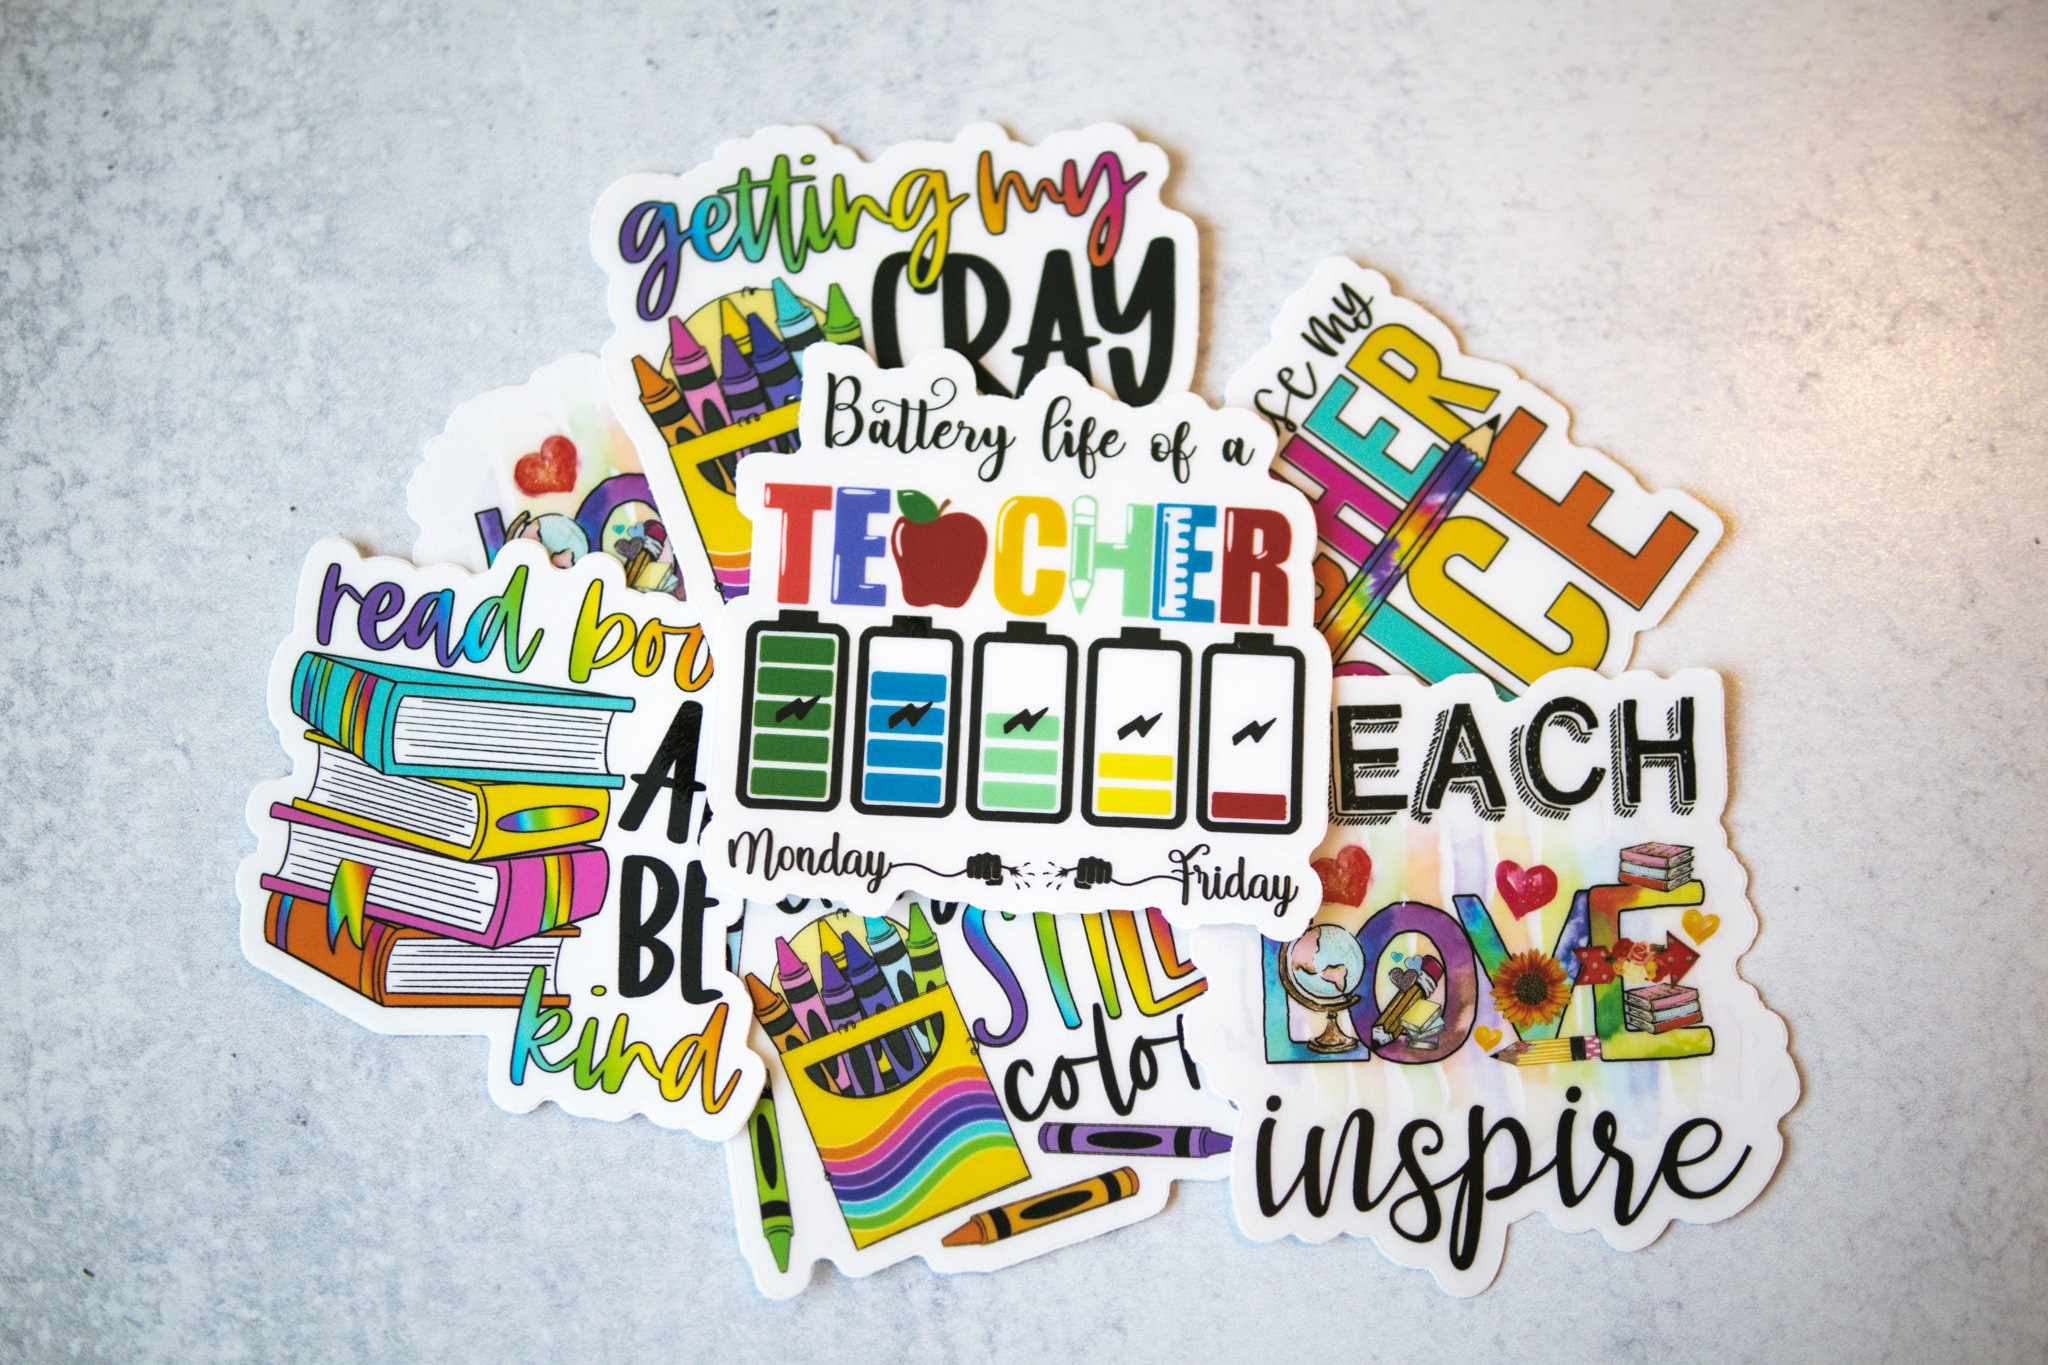 getting my
CRAY
Battery life of a
TEACHER
Monday
Friday
my
HER
ICE
read
A
BE
kind
STILL
color
EACH
LOVE
inspire
LO